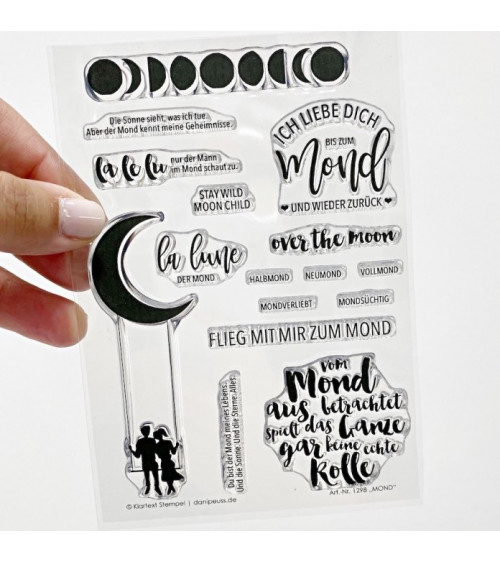 Die Sonne sieht, was ich tue.
Aber der Mond kennt meine Geheimnisse.
la le lu nur der Mann
im Mond schaut zu.
ICH LIEBE DICH
BIS ZUM
Mond
UND WIEDER ZURÜCK
STAY WILD
MOON CHILD
la lune
DER MOND
over the moon
HALBMOND
NEUMOND
VOLLMOND
MONDVERLIEBT
MONDSÜCHTIG
FLIEG MIT MIR ZUM MOND
Du bist der Mond meines Lebens.
Und die Sonne. Und die Sterne. Alles.
vom
Mond
aus betrachtet
spielt das Ganze
gar keine echte
Rolle
© Klartext Stempel | danipeuss.de
Art.-Nr. 1298 „MOND“